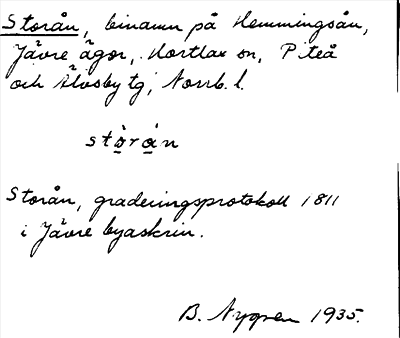 Storån, binamn på Hemmingsån,
Jävre ägor, Hortlax sn, Piteå
och Älvsby tg, Norrb. l.
stòrån
Storån, graderingsprotokoll 1811
i Jävre byaskrin.
B. Nygren 1935.